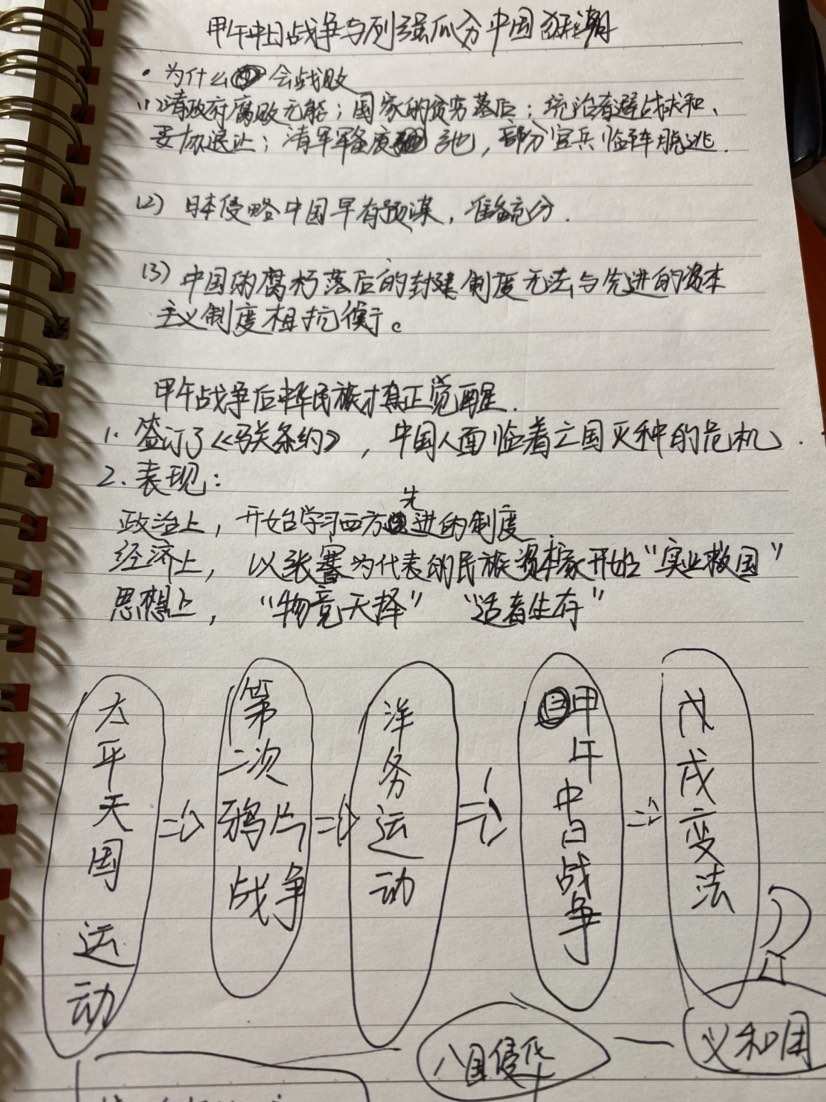 甲午中日战争与列强瓜分中国狂潮
·为什么会战败
(1)清政府腐败无能；国家的贫穷落后；统治者避战求和、
妥协退让；清军军备废弛，部分官兵临阵脱逃.
(2) 日本侵略中国早有预谋，准备充分.
(3) 中国的腐朽落后的封建制度无法与先进的资本
主义制度相抗衡。
甲午战争后中华民族才真正觉醒.
1. 签订了《马关条约》，中国人面临着亡国灭种的危机.
2. 表现：
政治上，开始学习西方先进的制度
经济上，以张謇为代表的民族资本家开始“实业救国”
思想上，“物竞天择”“适者生存”
太平天国运动
⇒
第二次鸦片战争
⇒
洋务运动
⇒
甲午中日战争
⇒
戊戌变法
义和团
八国侵华